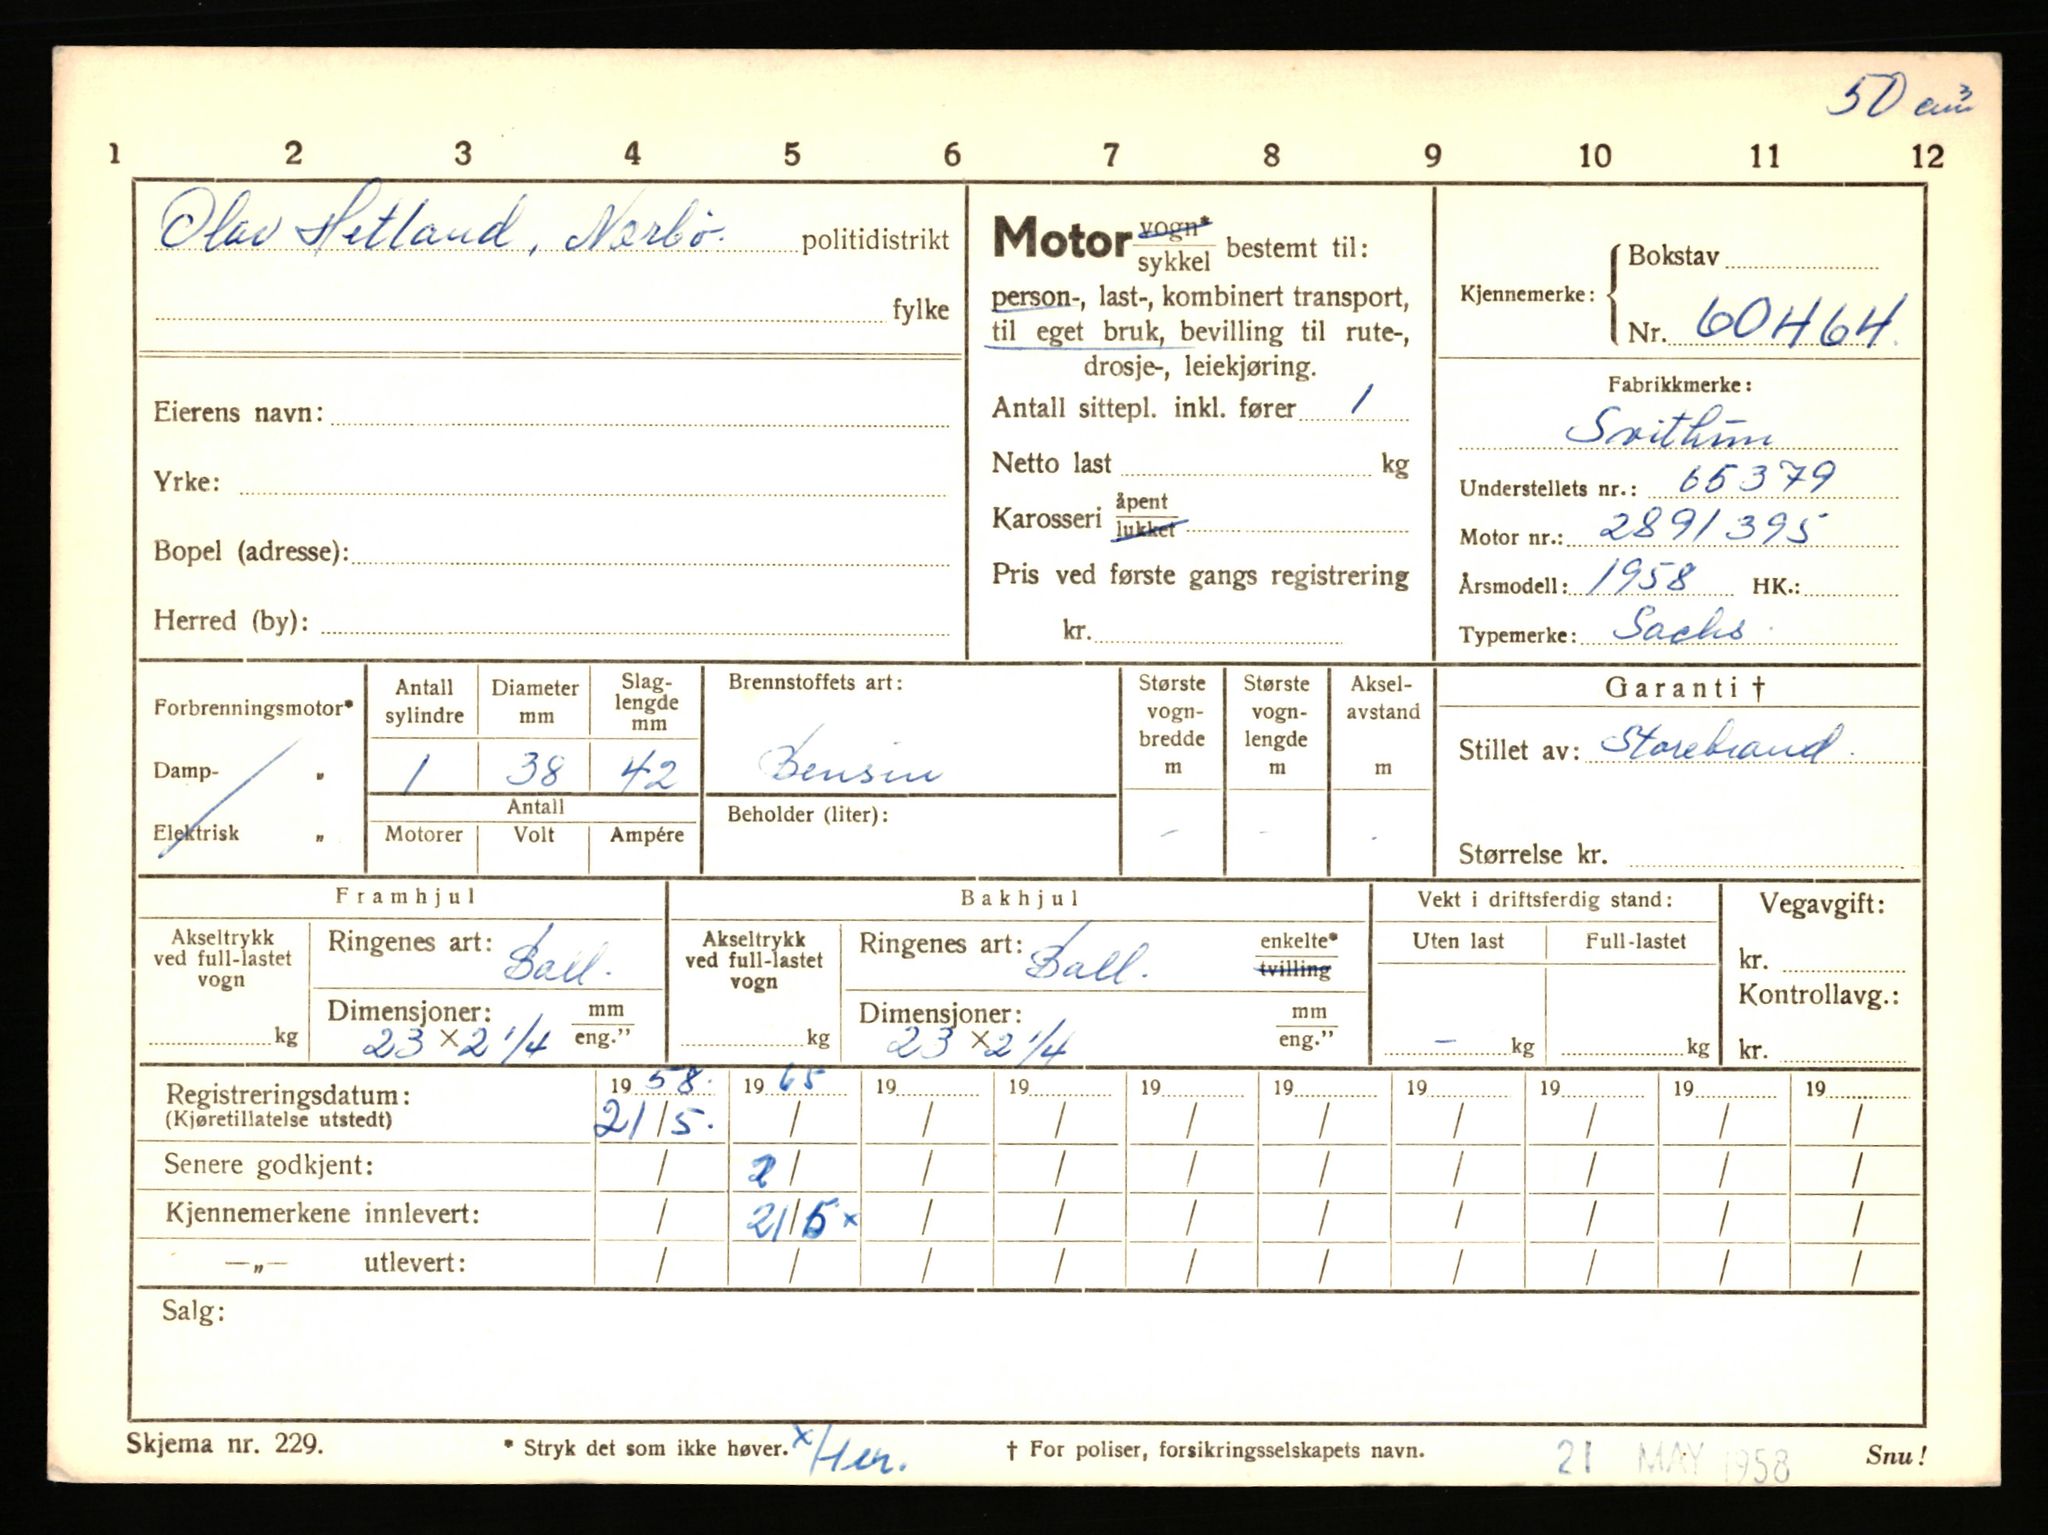 50 cm³
1 2 3 4 5 6 7 8 9 10 11 12
Olav Hetland, Nærbö. politidistrikt
fylke
Eierens navn:
Yrke:
Bopel (adresse):
Herred (by):
Motor vogn* sykkel bestemt til:
person-, last-, kombinert transport,
til eget bruk, bevilling til rute-,
drosje-, leiekjøring.
Antall sittepl. inkl. fører 1
Netto last kg
Karosseri åpent lukket
Pris ved første gangs registrering
kr.
Kjennemerke: Bokstav
Nr. 60464.
Fabrikkmerke:
Svithun
Understellets nr.: 65379
Motor nr.: 2891395
Årsmodell: 1958 HK.:
Typemerke: Sachs.
Forbrenningsmotor*
Damp- „
Elektrisk „
Antall sylindre
Diameter mm
Slag-
lengde
mm
1 38 42
Antall
Motorer Volt Ampére
Brennstoffets art:
Bensin
Beholder (liter):
Største
vogn-
bredde
m
-
Største
vogn-
lengde
m
-
Aksel-
avstand
m
-
Garanti †
Stillet av: Storebrand.
Størrelse kr.
Framhjul
Akseltrykk
ved full-lastet
vogn
kg
Ringenes art: Ball.
Dimensjoner: mm
23 x 2 1/4 eng.”
Bakhjul
Akseltrykk
ved full-lastet
vogn
kg
Ringenes art: Ball. enkelte* tvilling
Dimensjoner: mm
23 x 2 1/4 eng.”
Vekt i driftsferdig stand:
Uten last Full-lastet
- kg kg
Vegavgift:
kr.
Kontrollavg.:
kr.
Registreringsdatum: 19 58. 19 65 19 19 19 19 19 19 19 19
(Kjøretillatelse utstedt) 21/5. / / / / / / / / /
Senere godkjent: / 2/ / / / / / / / /
Kjennemerkene innlevert: / 21/5 x / / / / / / / /
—„— utlevert: / / / / / / / / / /
Salg:
Skjema nr. 229. * Stryk det som ikke høver. x/Her. † For poliser, forsikringsselskapets navn. 21 MAY 1958 Snu!